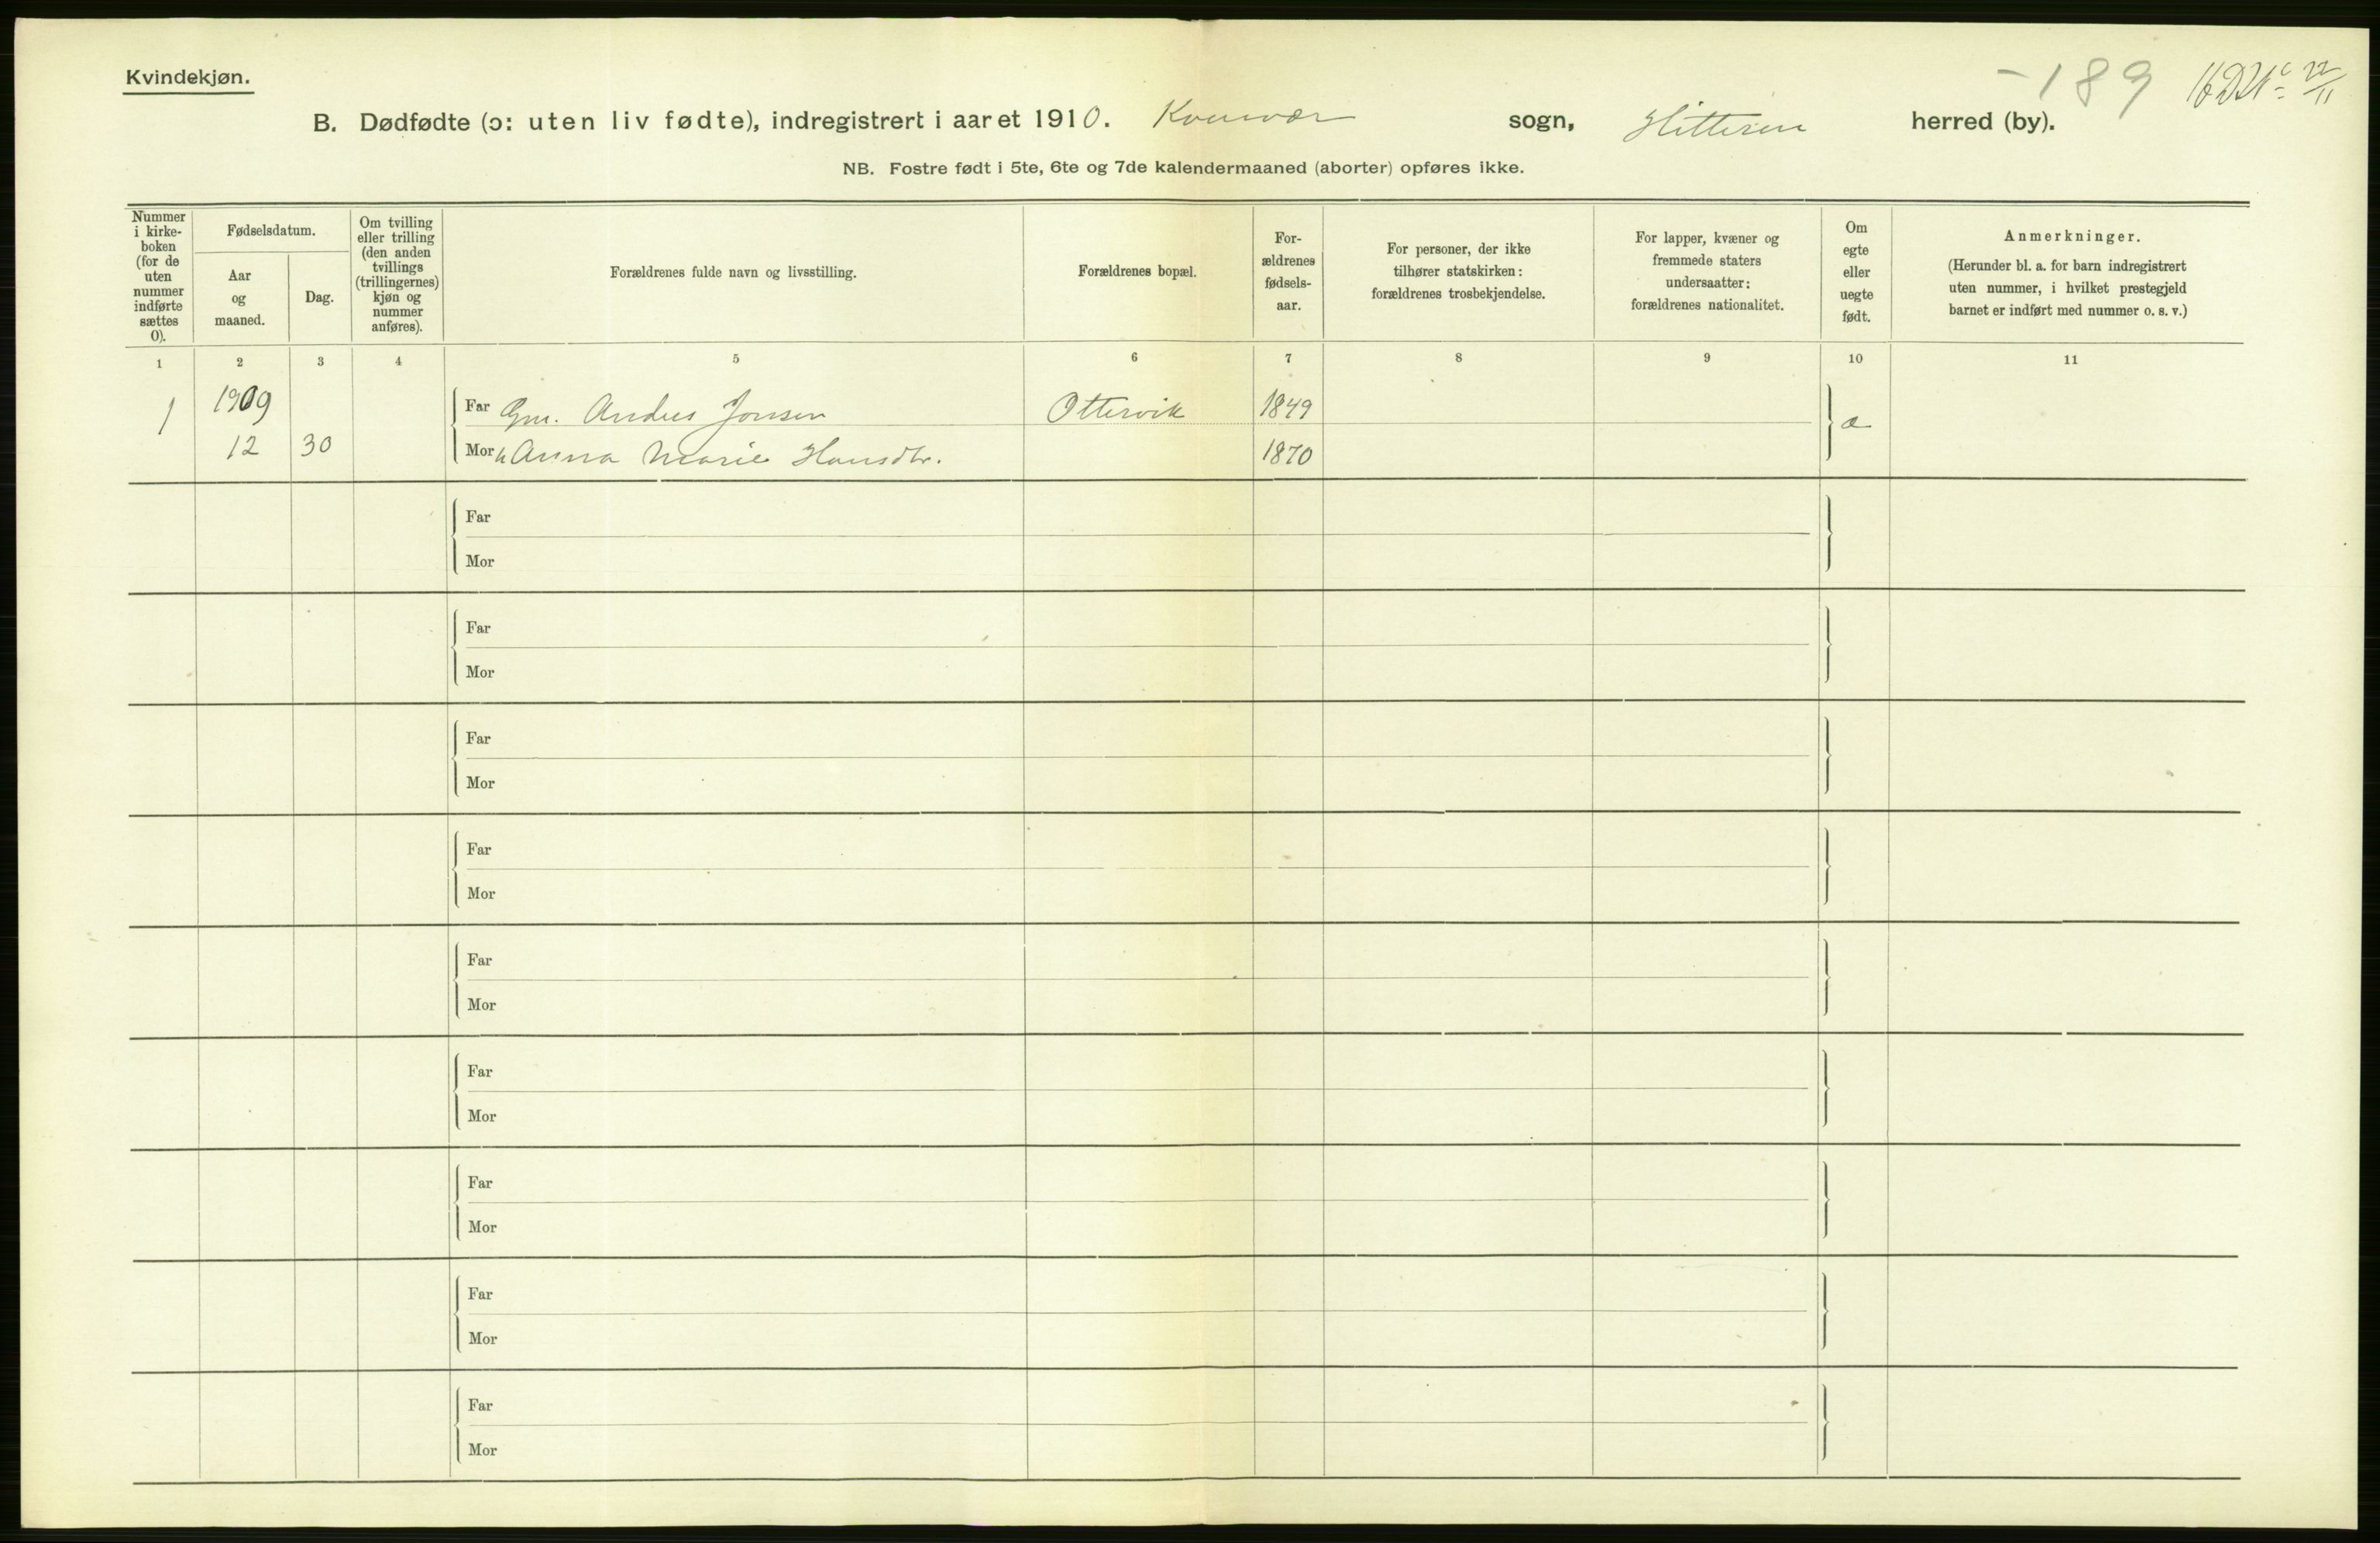 Kvindekjøn.
-189
B. Dødfødte (ɔ: uten liv fødte), indregistrert i aaret 1910. Kvenvær sogn, Hitteren herred (by).
NB. Fostre født i 5te, 6te og 7de kalendermaaned (aborter) opføres ikke.
Nummer i kirke-boken (for de uten nummer indførte sættes 0).
Fødselsdatum.
Aar og maaned.
Dag.
Om tvilling eller trilling (den anden tvillings (trillingernes) kjøn og nummer anføres).
Forældrenes fulde navn og livsstilling.
Forældrenes bopæl.
For-ældrenes fødsels-aar.
For personer, der ikke tilhører statskirken: forældrenes trosbekjendelse.
For lapper, kvæner og fremmede staters undersaatter: forældrenes nationalitet.
Om egte eller uegte født.
Anmerkninger.
(Herunder bl. a. for barn indregistrert uten nummer, i hvilket prestegjeld barnet er indført med nummer o. s. v.)
1 2 3 4 5 6 7 8 9 10 11
1 1909 Far Gm. Anders Jonsen Ottervik 1849
12 30 Mor Anna Marie Hansdtr. 1870
Far
Mor
Far
Mor
Far
Mor
Far
Mor
Far
Mor
Far
Mor
Far
Mor
Far
Mor
Far
Mor